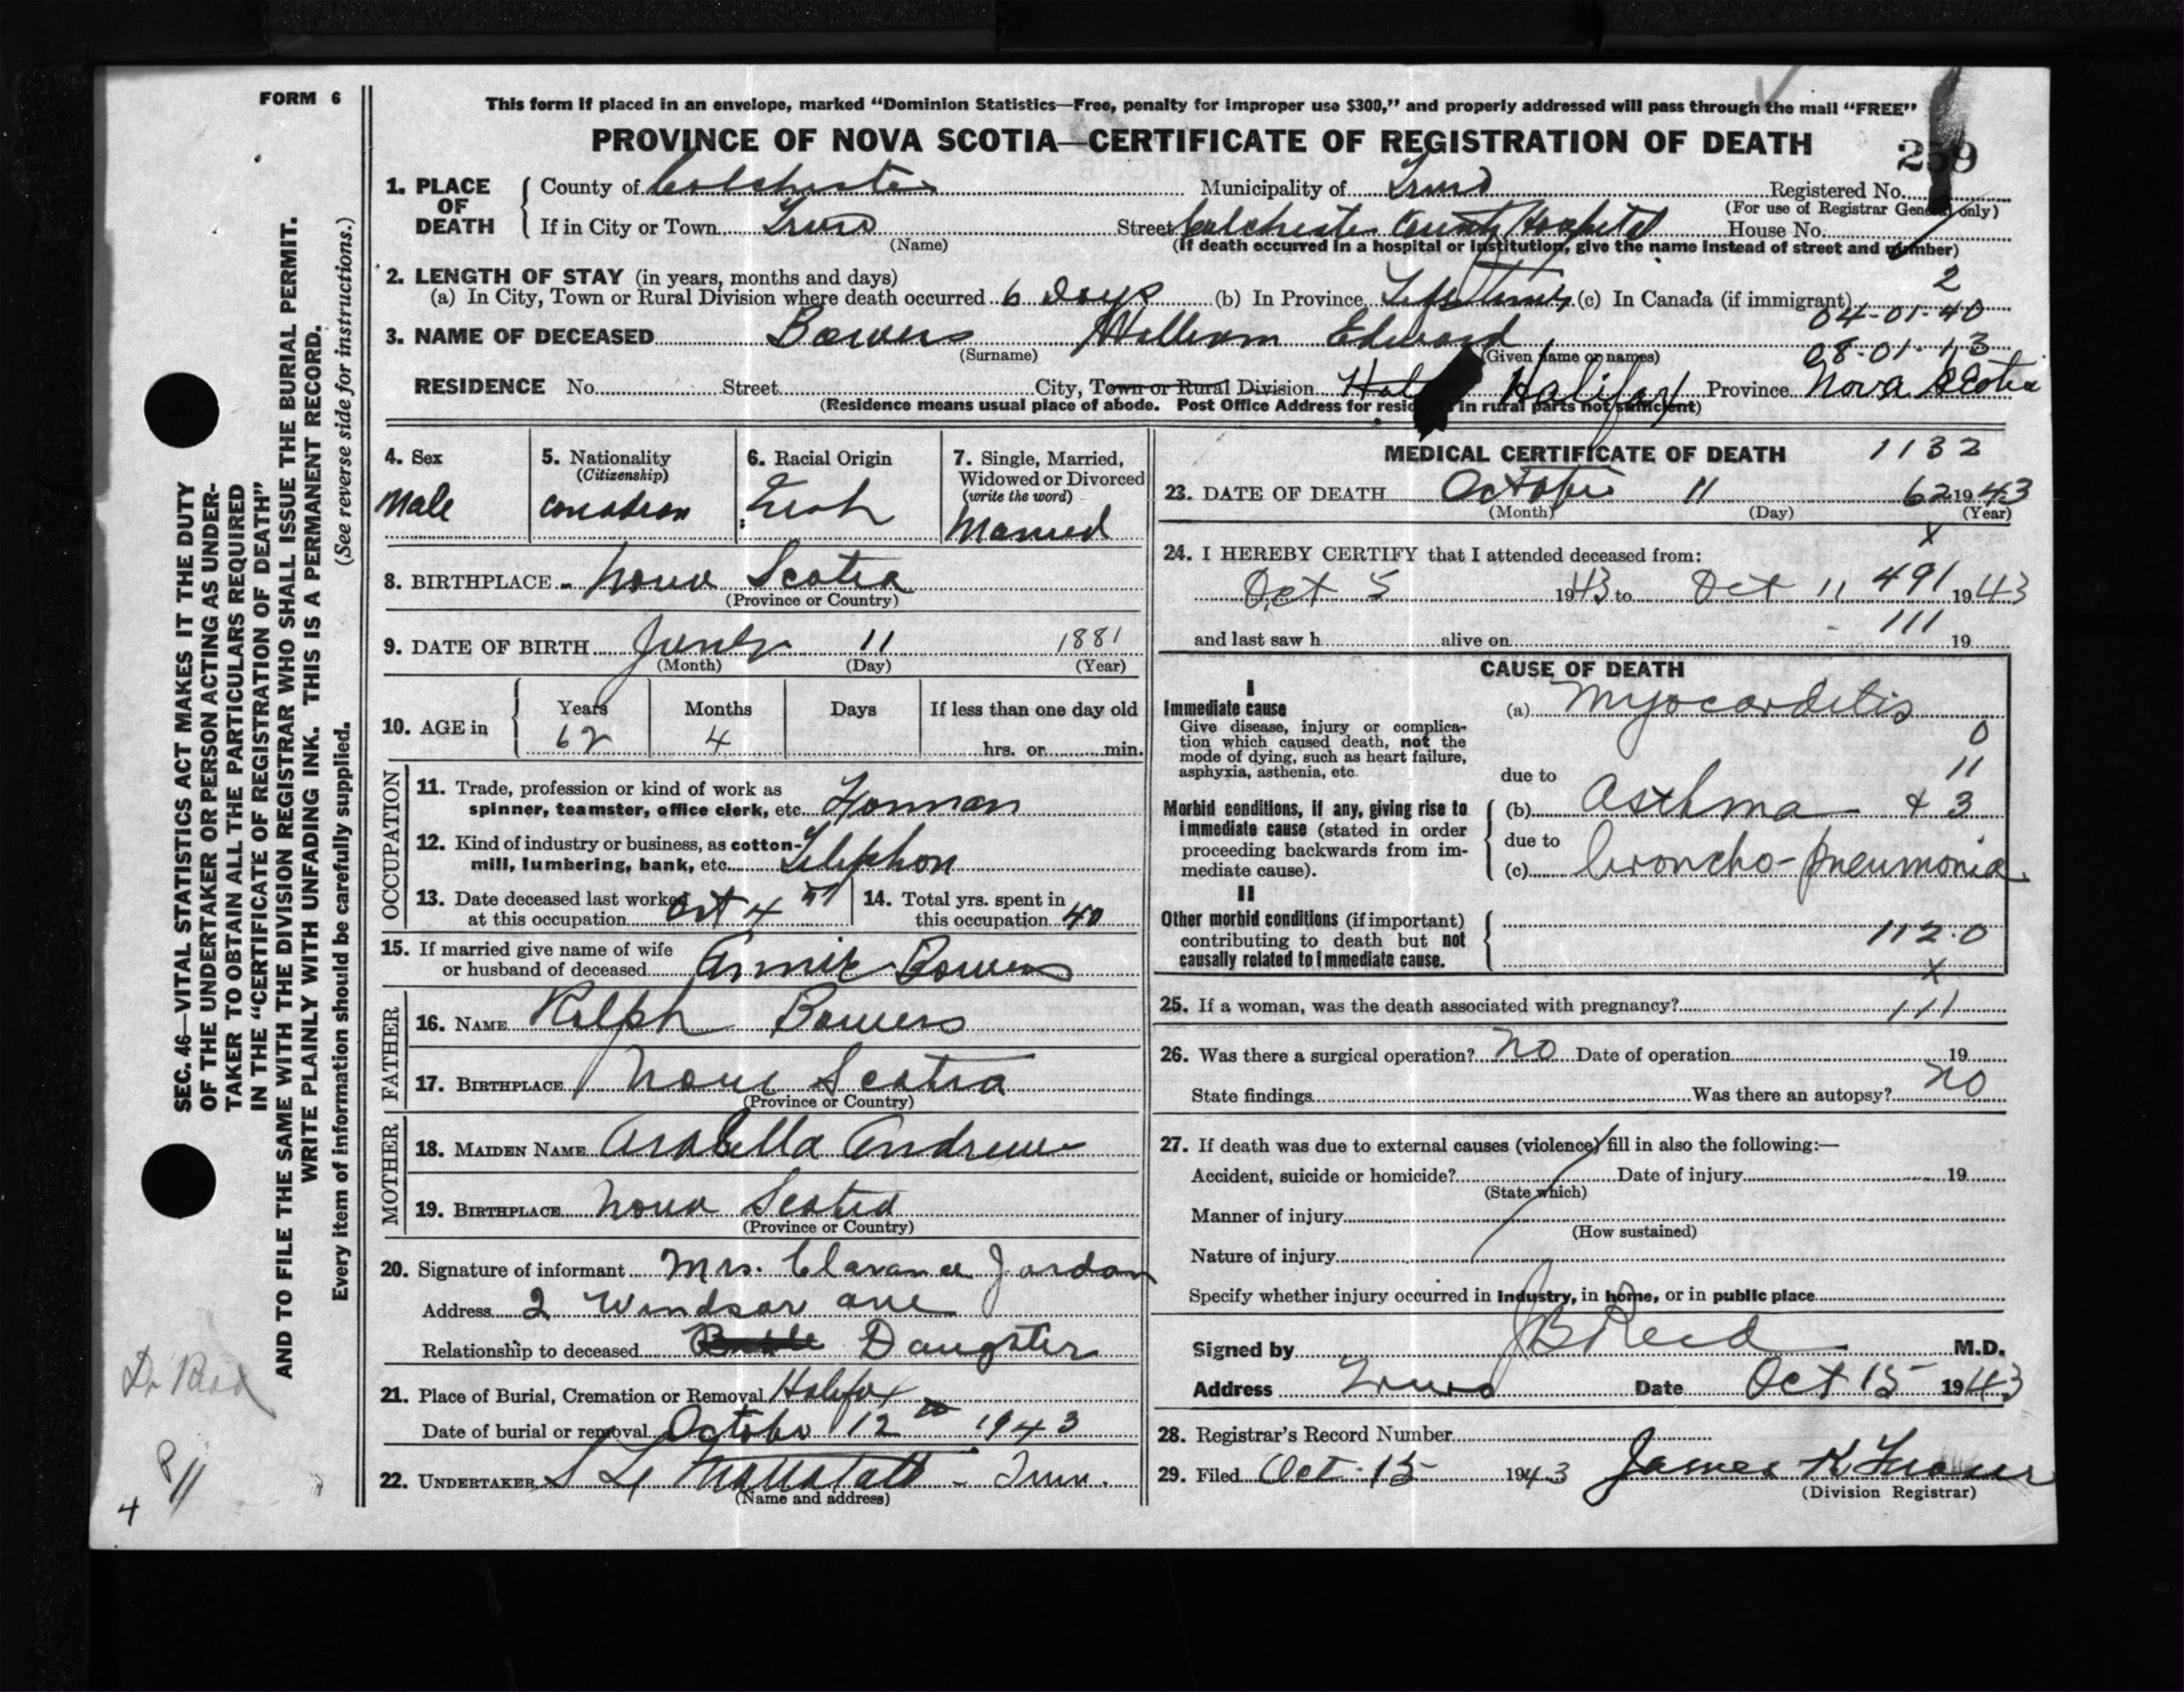 FORM 6
This form if placed in an envelope, marked “Dominion Statistics—Free, penalty for improper use $300,” and properly addressed will pass through the mail “FREE”
PROVINCE OF NOVA SCOTIA—CERTIFICATE OF REGISTRATION OF DEATH
259
1. PLACE OF DEATH
County of Colchester Municipality of Truro Registered No.
(For use of Registrar General only)
If in City or Town Truro Street Colchester County Hospital House No.
(Name) (If death occurred in a hospital or institution, give the name instead of street and number)
2. LENGTH OF STAY (in years, months and days)
(a) In City, Town or Rural Division where death occurred 6 Days (b) In Province Life Time (c) In Canada (if immigrant)
2
04-01-40
3. NAME OF DECEASED Bowers William Edward
(Surname) (Given name or names)
08-01-13
RESIDENCE No. Street City, Town or Rural Division Hal Halifax Province Nova Scotia
(Residence means usual place of abode. Post Office Address for residents in rural parts not sufficient)
4. Sex
Male
5. Nationality
(Citizenship)
Canadian
6. Racial Origin
Irish
7. Single, Married, Widowed or Divorced
(write the word)
Married
8. BIRTHPLACE Nova Scotia
(Province or Country)
9. DATE OF BIRTH June 11 1881
(Month) (Day) (Year)
10. AGE in
Years Months Days If less than one day old
62 4 hrs. or min.
OCCUPATION
11. Trade, profession or kind of work as
spinner, teamster, office clerk, etc. Forman
12. Kind of industry or business, as cotton-
mill, lumbering, bank, etc. Telephon
13. Date deceased last worked
at this occupation Oct 4
14. Total yrs. spent in
this occupation 40
15. If married give name of wife
or husband of deceased Annie Bowers
FATHER
16. NAME Ralph Bowers
17. BIRTHPLACE Nova Scotia
(Province or Country)
MOTHER
18. MAIDEN NAME Arabella Andrews
19. BIRTHPLACE Nova Scotia
(Province or Country)
20. Signature of informant Mrs. Clarance Jordan
Address 2 Windsor ave
Relationship to deceased Daughter
21. Place of Burial, Cremation or Removal Halifax
Date of burial or removal October 12 th 1943
22. UNDERTAKER
(Name and address)
MEDICAL CERTIFICATE OF DEATH 1132
23. DATE OF DEATH October 11 62 1943
(Month) (Day) (Year)
x
24. I HEREBY CERTIFY that I attended deceased from:
Oct 5 1943 to Oct 11 491 1943
111
and last saw h alive on 19
CAUSE OF DEATH
I
Immediate cause
Give disease, injury or complica-
tion which caused death, not the
mode of dying, such as heart failure,
asphyxia, asthenia, etc.
(a) Myocarditis
0
11
due to
Morbid conditions, if any, giving rise to
immediate cause (stated in order
proceeding backwards from im-
mediate cause).
(b) Asthma + 3
due to
(c) broncho-pneumonia
II
Other morbid conditions (if important)
contributing to death but not
causally related to immediate cause.
112.0
x
25. If a woman, was the death associated with pregnancy? 111
26. Was there a surgical operation? No Date of operation 19
State findings Was there an autopsy? No
27. If death was due to external causes (violence) fill in also the following:—
Accident, suicide or homicide? Date of injury 19
(State which)
Manner of injury
(How sustained)
Nature of injury
Specify whether injury occurred in Industry, in home, or in public place
Signed by J B Reid M.D.
Address Truro Date Oct 15 1943
28. Registrar’s Record Number
29. Filed Oct. 15 1943 James K Fraser
(Division Registrar)
SEC. 46—VITAL STATISTICS ACT MAKES IT THE DUTY
OF THE UNDERTAKER OR PERSON ACTING AS UNDER-
TAKER TO OBTAIN ALL THE PARTICULARS REQUIRED
IN THE “CERTIFICATE OF REGISTRATION OF DEATH”
AND TO FILE THE SAME WITH THE DIVISION REGISTRAR WHO SHALL ISSUE THE BURIAL PERMIT.
WRITE PLAINLY WITH UNFADING INK. THIS IS A PERMANENT RECORD.
Every item of information should be carefully supplied. (See reverse side for instructions.)
Dr Reid
4